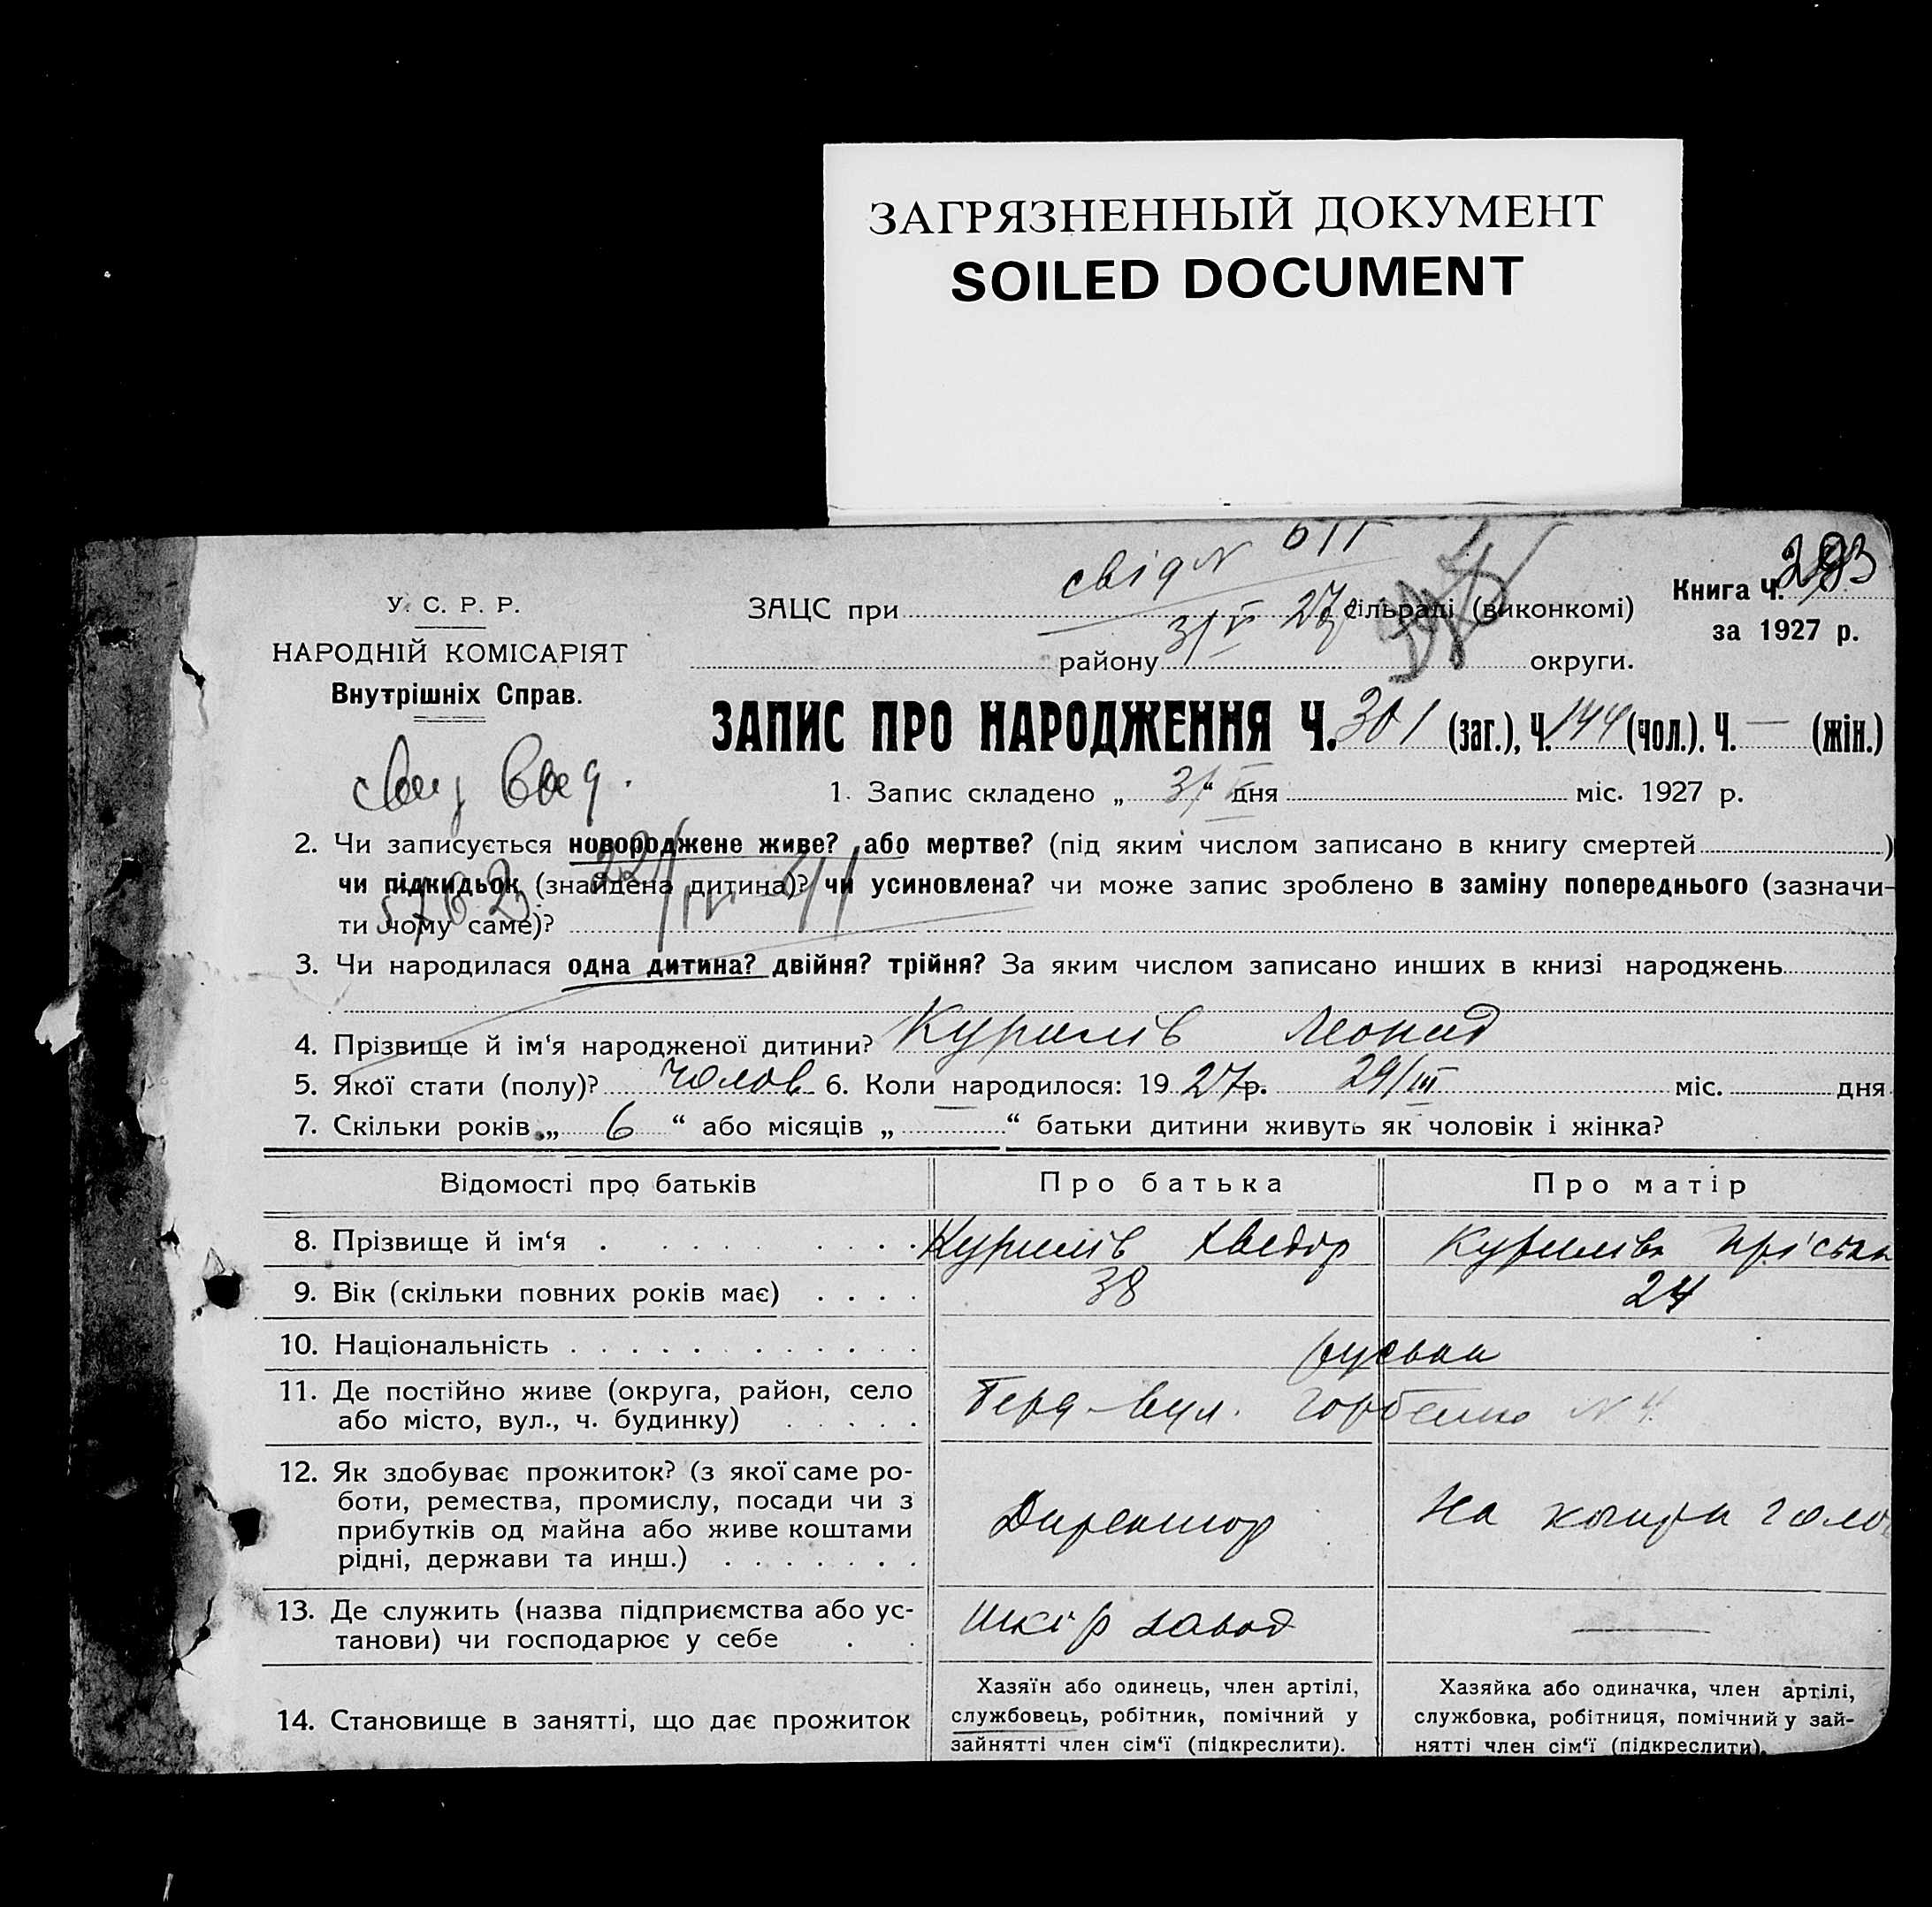 ЗАГРЯЗНЕННЫЙ ДОКУМЕНТ
SOILED DOCUMENT
свід N 611
У. С. Р. Р.
ЗАЦС при сільраді (виконкомі)
Книга Ч. 293
31/V 27
за 1927 р.
НАРОДНІЙ КОМІСАРІЯТ
району округи.
Внутрішніх Справ.
ЗАПИС ПРО НАРОДЖЕННЯ Ч. 301 (заг.), Ч. 144 (чол.). Ч. — (жін.)
1. Запис складено „ 31/V “ дня міс. 1927 р.
2. Чи записується новороджене живе? або мертве? (під яким числом записано в книгу смертей )
чи підкидьок (знайдена дитина)? чи усиновлена? чи може запис зроблено в заміну попереднього (зазначи-
ти чому саме)?
3. Чи народилася одна дитина? двійня? трійня? За яким числом записано инших в книзі народжень
4. Прізвище й ім‘я народженої дитини? Курилів Леонид
5. Якої стати (полу)? чолов 6. Коли народилося: 19 27 р. 29/III міс. дня
7. Скільки років „ 6 “ або місяців „ — “ батьки дитини живуть як чоловік і жінка?
Відомості про батьків Про батька Про матір
8. Прізвище й ім‘я Курилів Хведір Курилівa Пріська
9. Вік (скільки повних років має) 38 24
10. Національність руська
11. Де постійно живе (округа, район, село
або місто, вул., ч. будинку) вул. N 4
12. Як здобуває прожиток? (з якої саме ро-
боти, ремества, промислу, посади чи з
прибутків од майна або живе коштами
рідні, держави та инш.) Директор На
13. Де служить (назва підприємства або ус-
танови) чи господарює у себе Шкір завод —
14. Становище в занятті, що дає прожиток
Хазяїн або одинець, член артілі,
службовець, робітник, помічний у
зайнятті член сім‘ї (підкреслити).
Хазяйка або одиначка, член артілі,
службовка, робітниця, помічний у зай-
нятті член сім‘ї (підкреслити).